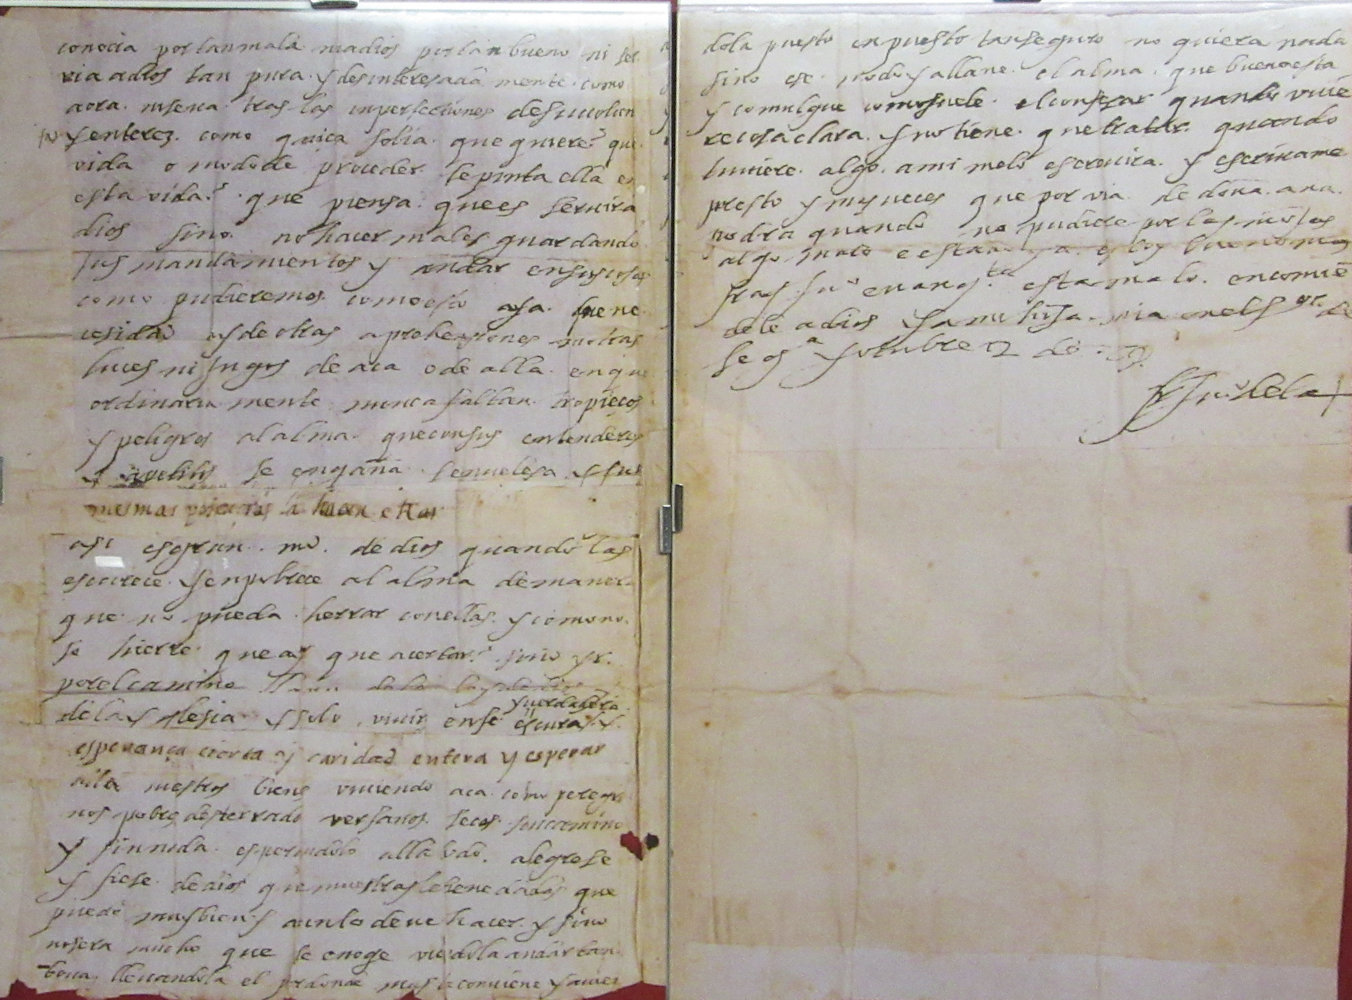 conocia por tan mala ni a dios por tan bueno ni ser
via a dios tan pura y desinteresada mente como
aora ni se va tras las inperfectiones de su volun
y enterez. como quiça solia. que quiere? que
vida o modo de proceder se pinta ella en
esta vida? que piensa que es servir a
dios sino no hacer males guardando
sus mandamientos y andar en sus cosas
como pudieremos como esto aya. que ne
cesidad ay de otras aprehensiones ni otras
luces ni jugos de aca o de alla. en que
ordinaria mente nunca faltan tropieços
y peligros al alma. que con sus entenderes
y apetitos se engaña. se embelesa y sus
mesmas potencias la hacen errar
asi es gran md. de dios quando las
escurece y enpobrece al alma de maner
que no pueda herrar con ellas. y como no
se hierre que ay que acertar? sino yr.
por el camino llano de la ley de dios
y verdadera
de la yglesia y solo vivir en fe escura y
esperança cierta y caridad entera y esperar
alla nuestros bienes viviendo aca como peregri
nos pobres desterrados uerfanos secos sin camino
y sin nada. esperandolo alla todo. alegrese
y fiese de dios que muestras le tiene dadas que
puede muy bien y aun lo deve hacer y sino
no sera mucho que se enoje viendola andar tan
bova llevandola el por donde mas le conviene y avien
dola puesto en puesto tan seguro no quiera nada
sino ese modo y allane el alma que buena esta
y comulgue como suele. el confesar quando uvie
re cosa clara. y no tiene que tratar. quando
tuviere algo a mi me lo escrivira. y escrivame
presto y mas veces que por via de doña ana.
podra quando no pudiere por las monjas
algo malo e estado ya estoy bueno mas
fray juº evangta. esta malo. encomie
dele a dios y a mi hija mia en el Sor. de
Sega y otubre 12 de 89.
fr. juº de la +